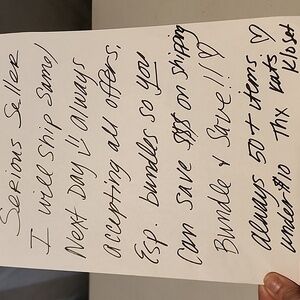 Serious Seller
I will ship same/
Next Day!! Always
accepting all offers.
Esp. bundles so you
Can save $$$ on shipping
Bundle & Save!! ♡
always 50+ items ♡
under $10 Thx Kat's
Kloset